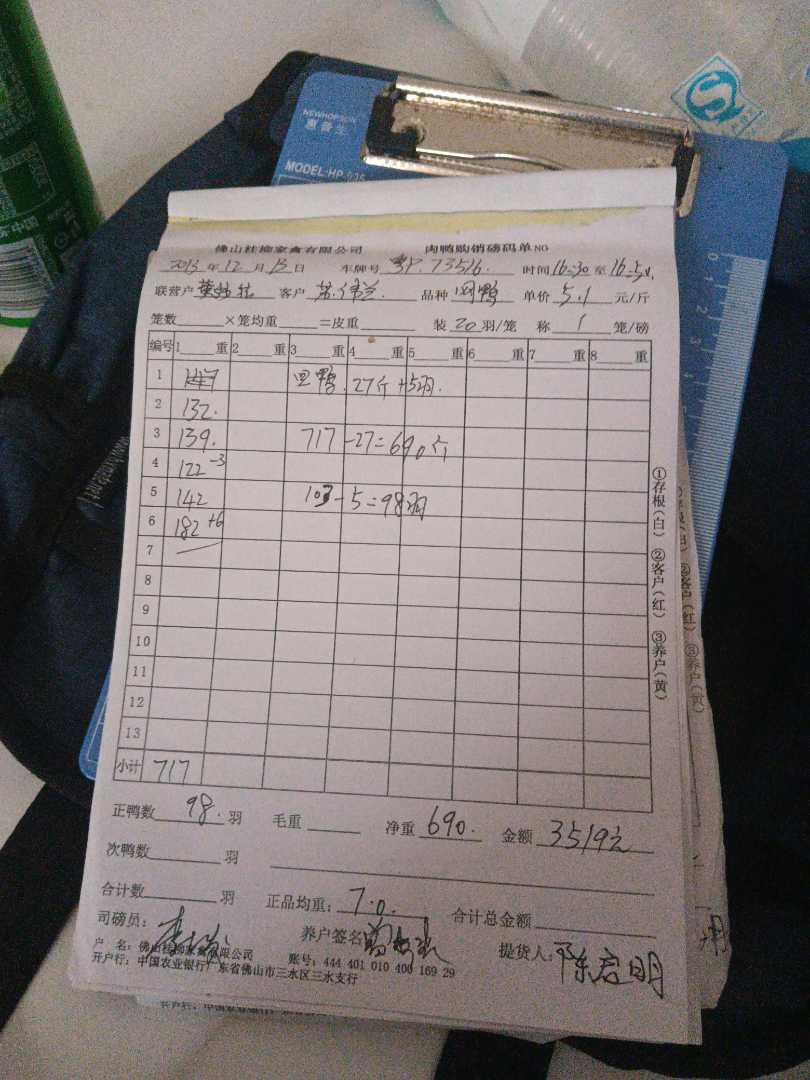 NEWHOPSON
惠普生
MODEL:HP-035
佛山桂柳家禽有限公司 肉鸭购销磅码单 NO
2013年12月13日 车牌号 粤P 73516. 时间 16:30 至 16:5
联营户 客户 品种 单价 5.1 元/斤
笼数 ×笼均重 =皮重 装 20 羽/笼 称 1 笼/磅
编号 1 重 2 重 3 重 4 重 5 重 6 重 7 重 8 重
1 147 回鸭. 27斤 +5羽.
2 132.
3 139. 717-27=690斤
4 122 -3
5 142 103-5=98羽
6 182 +6
7
8
9
10
11
12
13
小计 717
①存根(白) ②客户(红) ③养户(黄)
正鸭数 98. 羽 毛重 净重 690. 金额 3519元
次鸭数 羽
合计数 羽 正品均重: 7.0. 合计总金额
司磅员: 养户签名 提货人: 陈启明
户 名: 佛山桂柳家禽有限公司 账号: 444 401 010 400 169 29
开户行: 中国农业银行广东省佛山市三水区三水支行